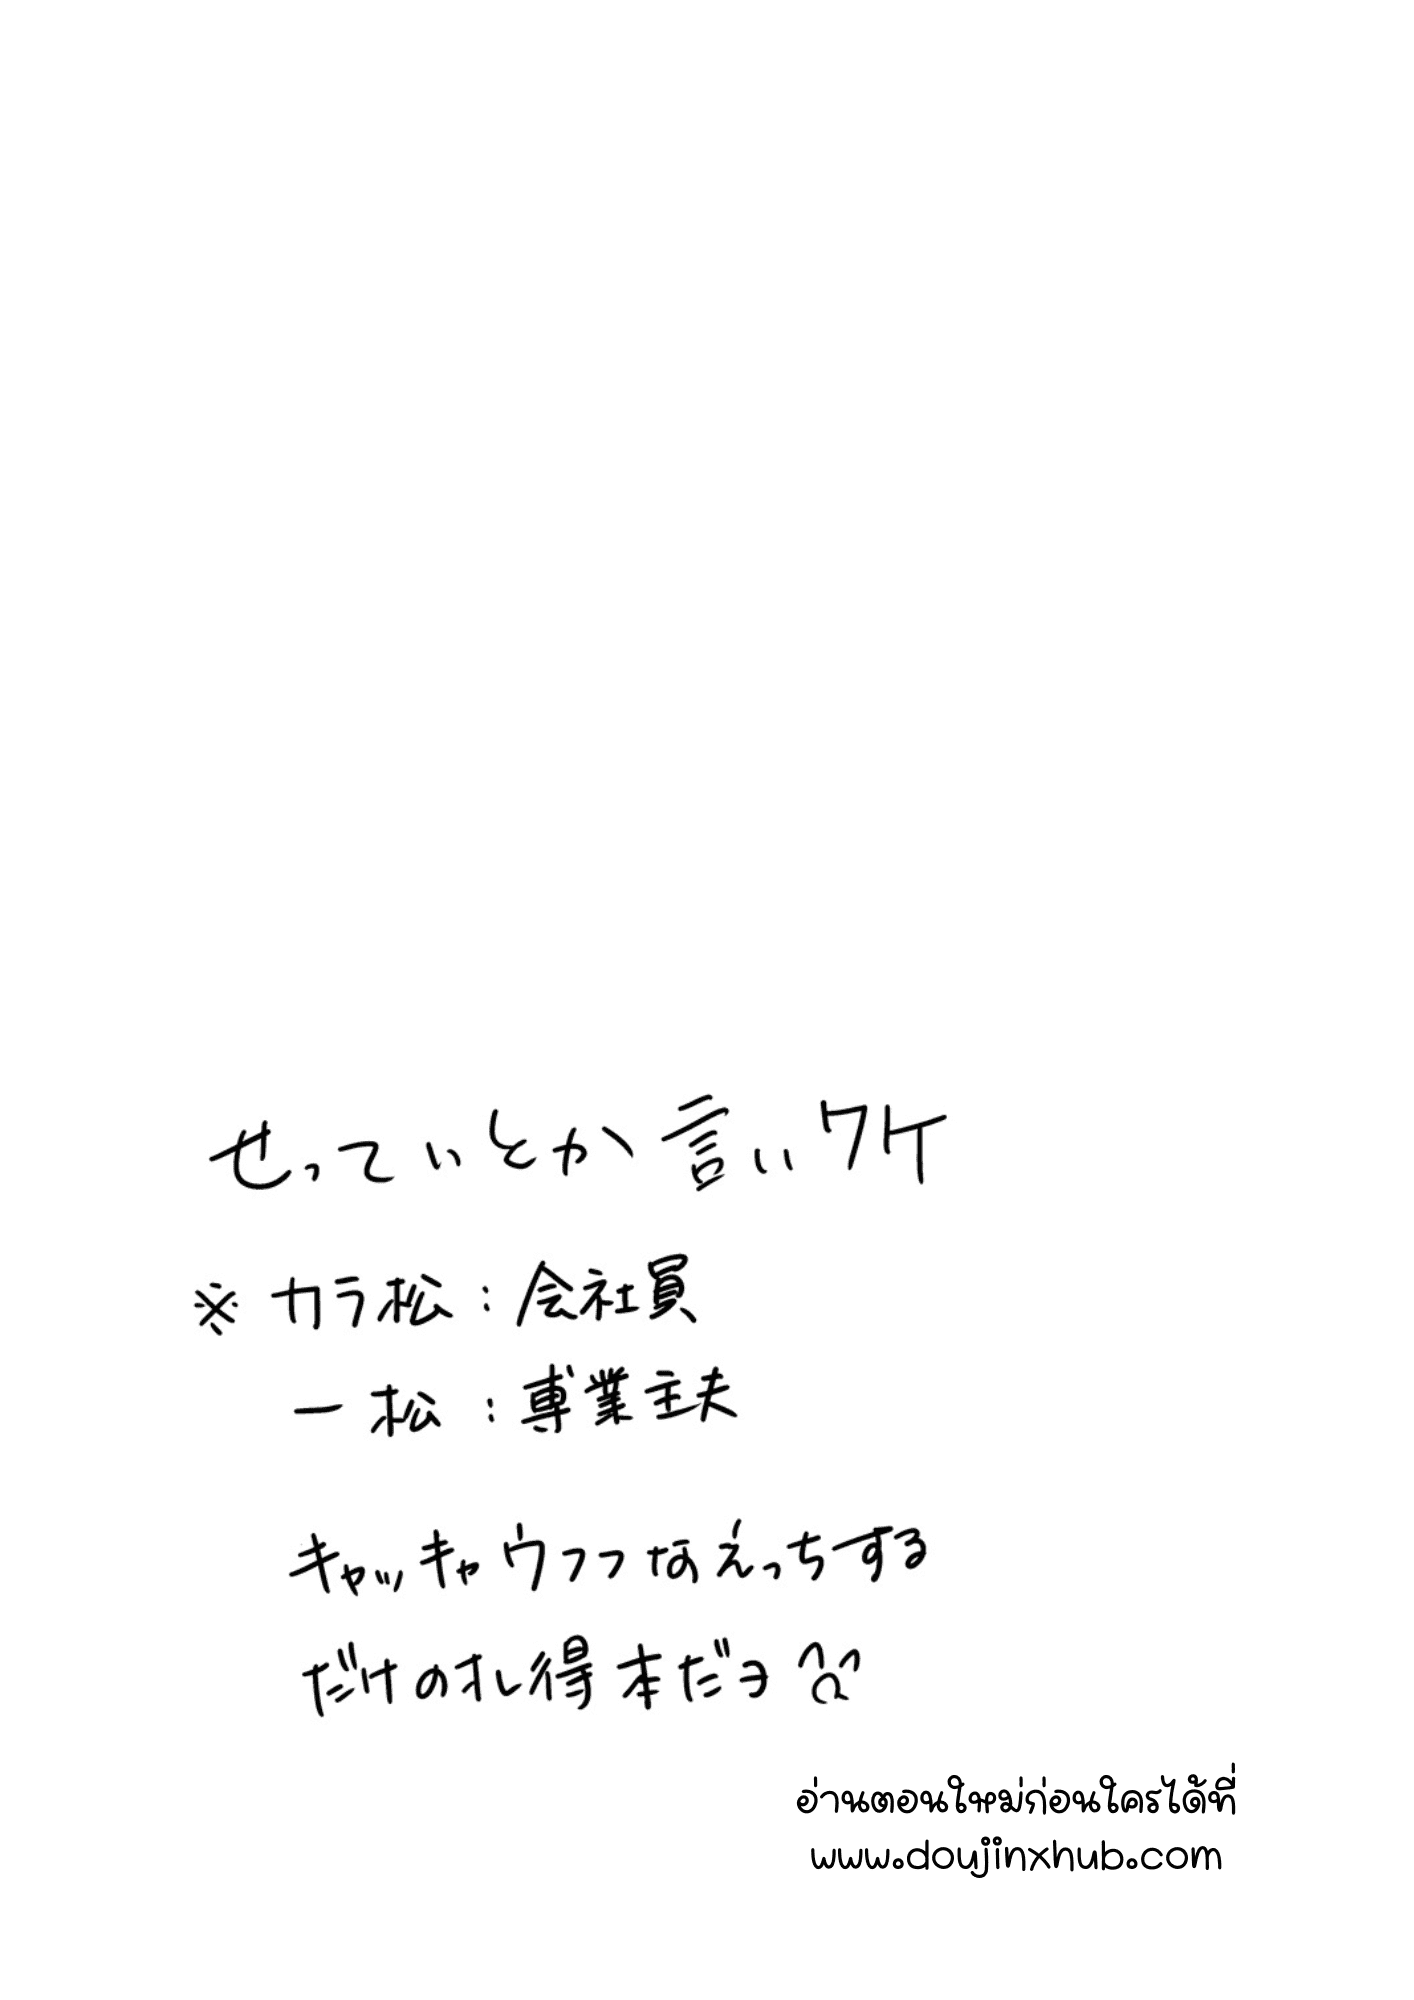 せっていとか言いワケ
※ カラ松：会社員
一松：専業主夫
キャッキャウフフなえっちする
だけのオレ得本だヨ
อ่านตอนใหม่ก่อนใครได้ที่
www.doujinxhub.com